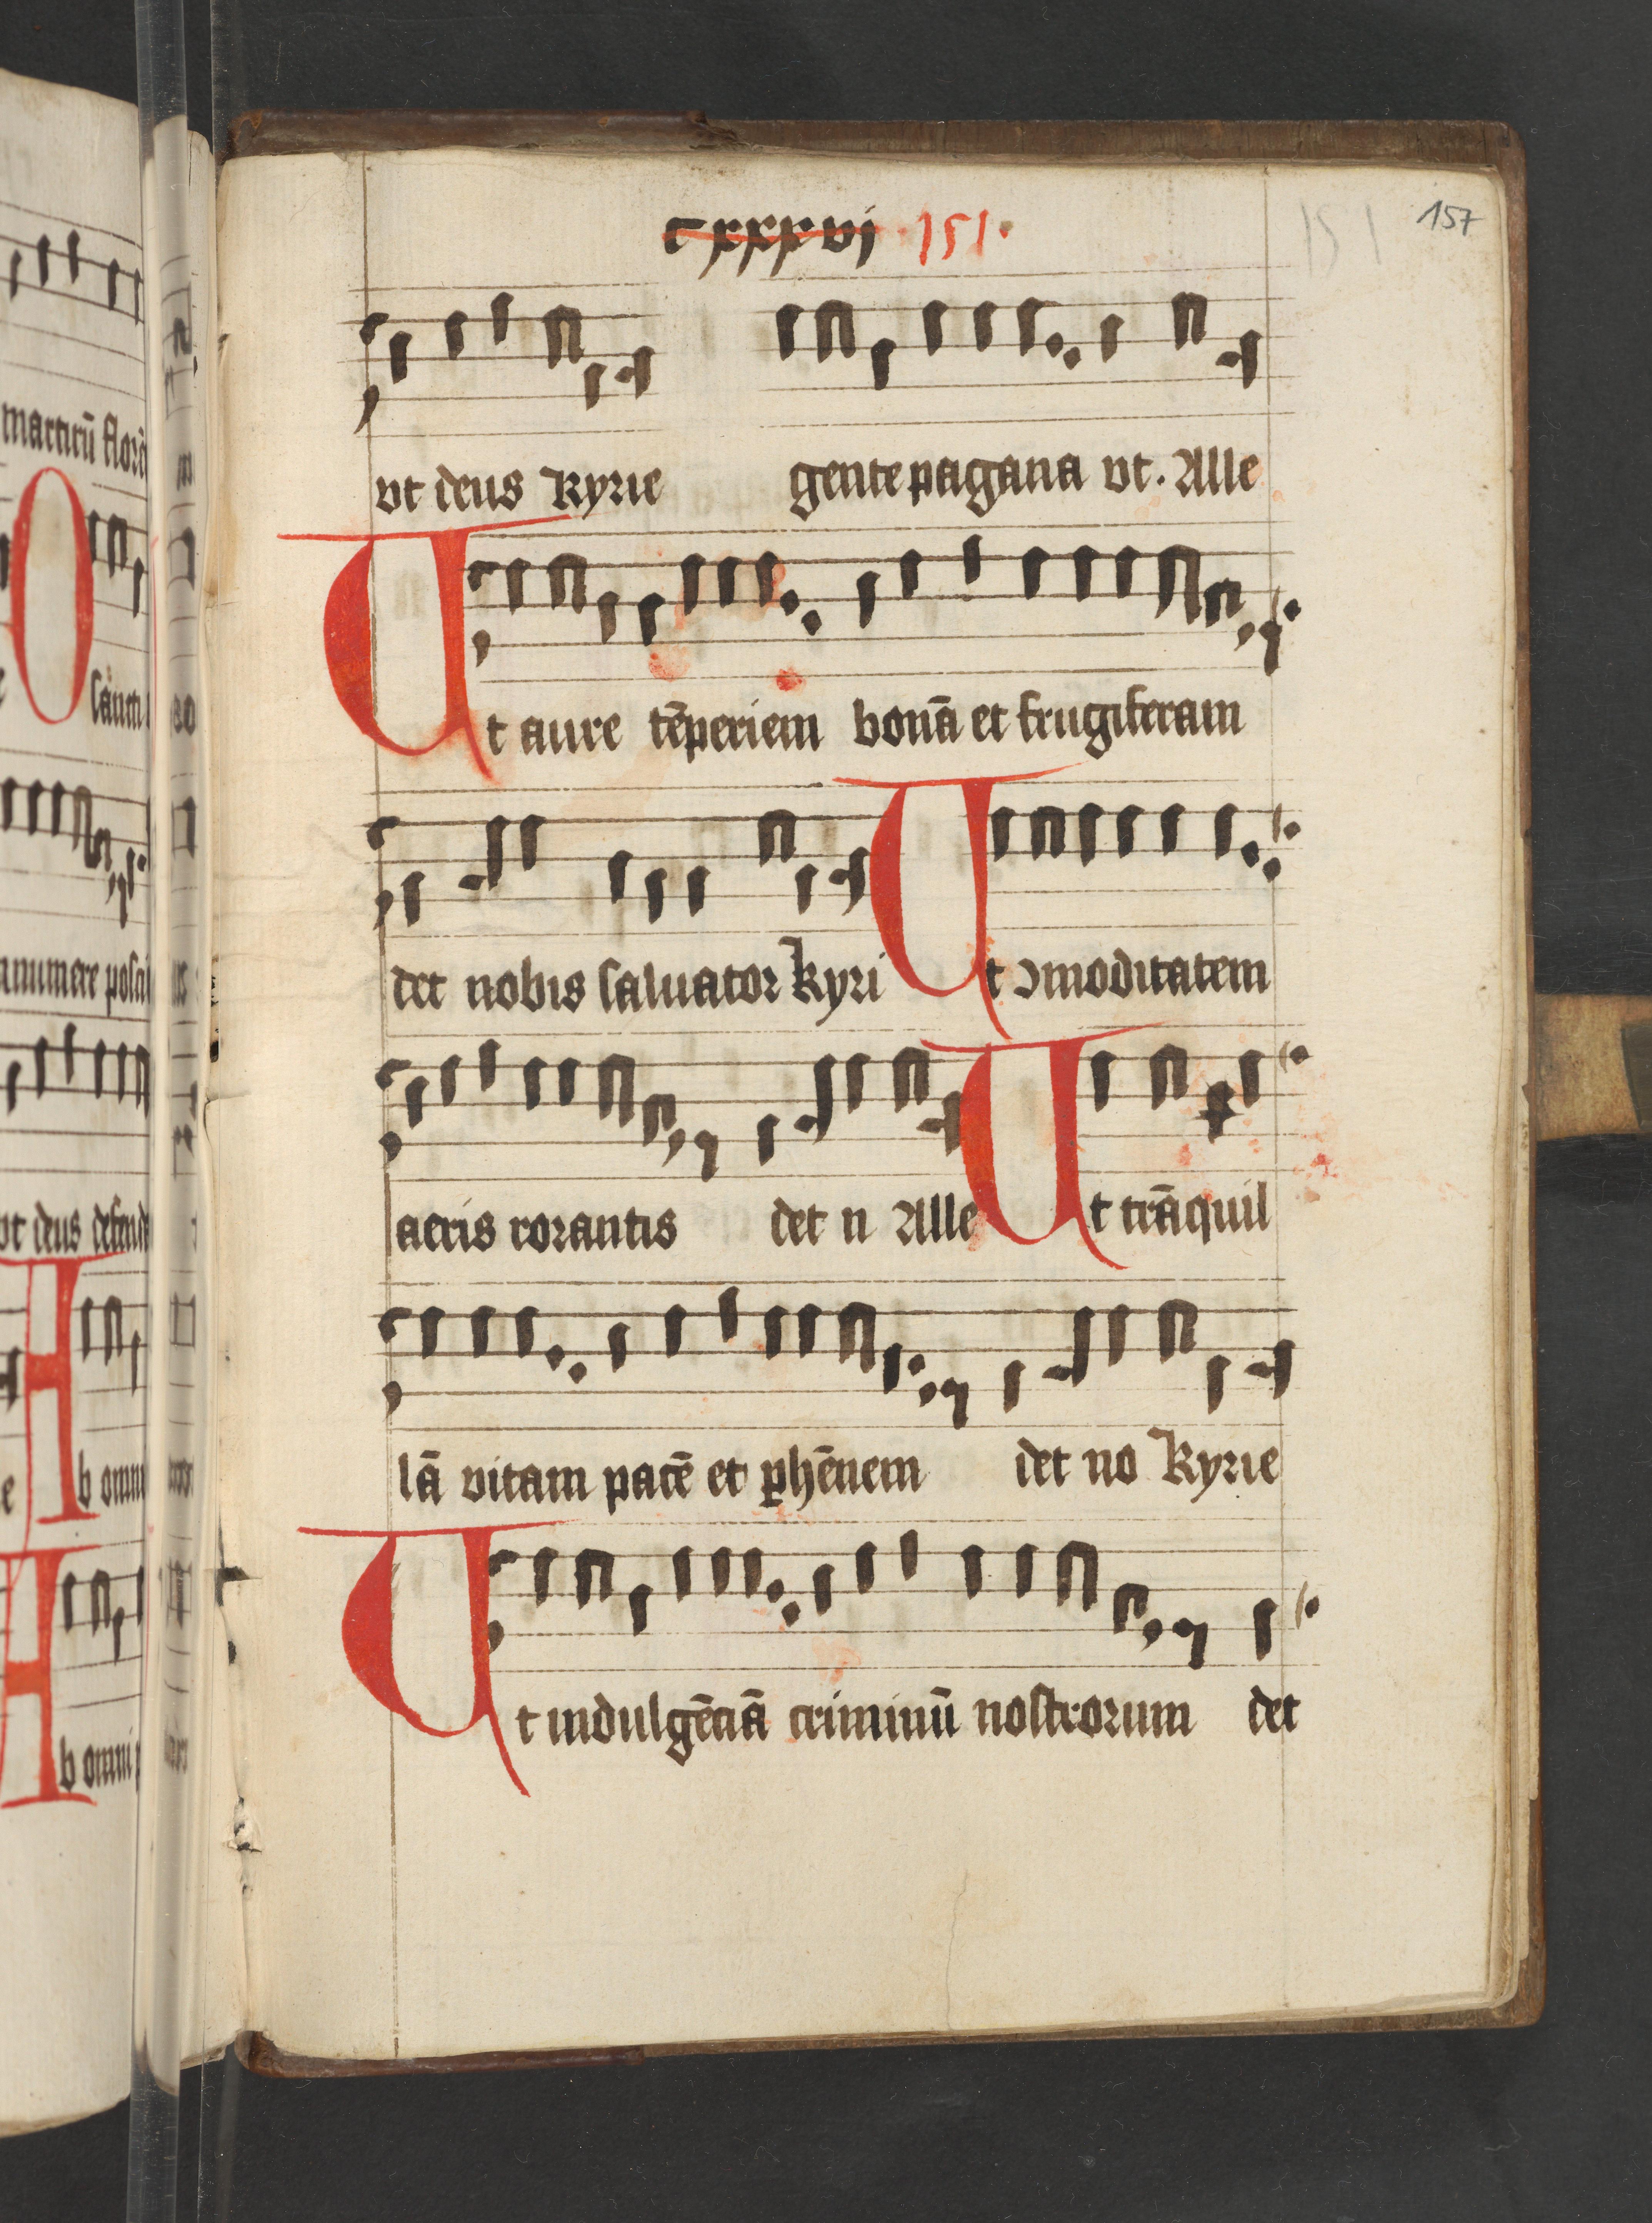 cxxxvi 151.
151
157
vt deus Kyrie gente pagana vt. Alle
Ut aure tēperiem bonā et frugiferam
det nobis saluator kyri Ut ↄmoditatem
aeris rorantis det n Alle Ut trāquil
lā vitam pacē et ꝑhēnem det no Kyrie
Ut indulgēciā criminū nostrorum det
marticū
O sancti
vt deus
A b omni
A b omni